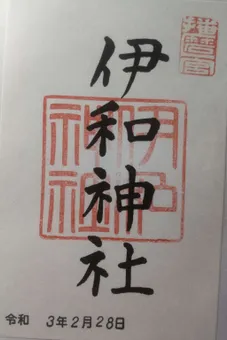 播磨国
伊和神社
伊和
神社
令和 3年2月28日